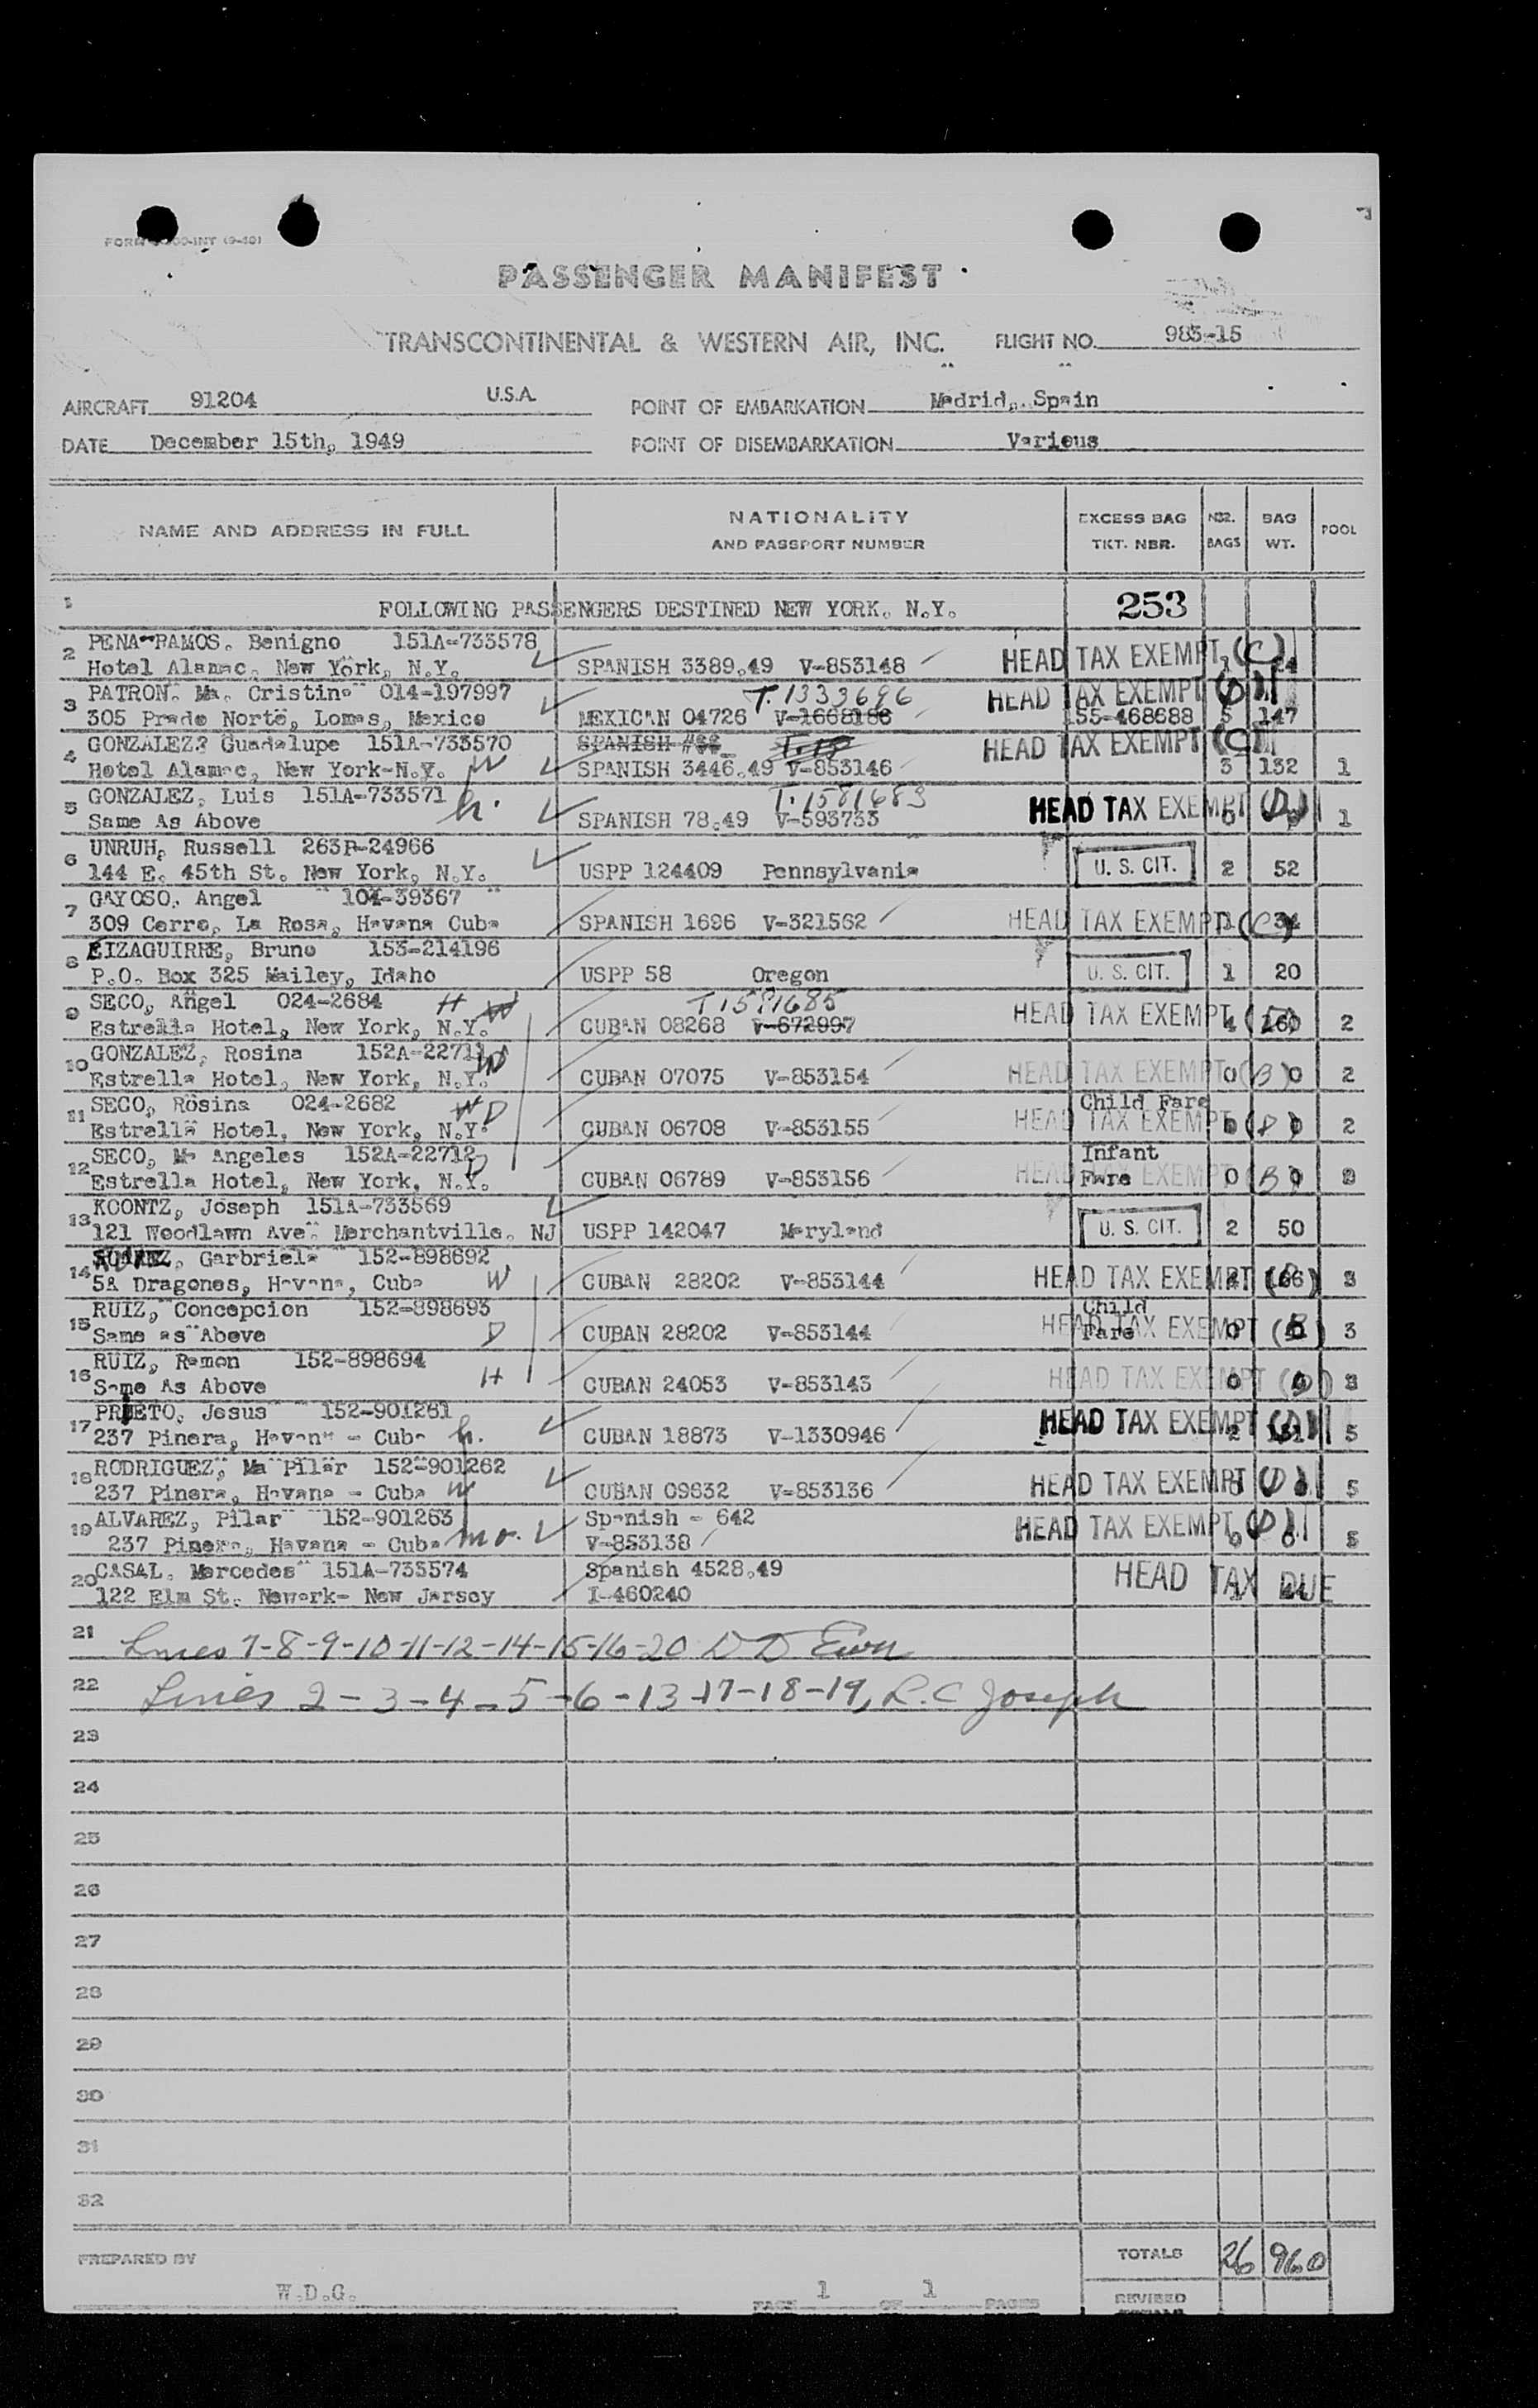 PASSENGER MANIFEST
TRANSCONTINENTAL & WESTERN AIR, INC. FLIGHT NO. 983-15
AIRCRAFT 91204 U.S.A. POINT OF EMBARKATION Madrid, Spain
DATE December 15th, 1949 POINT OF DISEMBARKATION Various
NAME AND ADDRESS IN FULL NATIONALITY AND PASSPORT NUMBER EXCESS BAG TKT. NBR. NBR. BAGS BAG WT. POOL
1 FOLLOWING PASSENGERS DESTINED NEW YORK, N.Y. 253
2 PENA RAMOS, Benigno 151A-733578
Hotel Alamac, New York, N.Y. SPANISH 3389.49 V-853148 HEAD TAX EXEMPT (C)
3 PATRON, Ma. Cristina 014-197997 T.1333696 HEAD TAX EXEMPT
305 Prado Norte, Lomas, Mexico MEXICAN 04726 V-1668186 155-468688 5 147
4 GONZALEZ, Guadalupe 151A-733570 SPANISH HEAD TAX EXEMPT (C)
Hotel Alamac, New York-N.Y. W SPANISH 3446.49 V-853146 3 132 1
5 GONZALEZ, Luis 151A-733571 h. T.1581683
Same As Above SPANISH 78.49 V-593733 HEAD TAX EXEMPT 1
6 UNRUH, Russell 263P-24966
144 E. 45th St. New York, N.Y. USPP 124409 Pennsylvania U. S. CIT. 2 52
7 GAYOSO, Angel 104-39367
309 Cerro, La Rosa, Havana Cuba SPANISH 1696 V-321562 HEAD TAX EXEMPT (C) 34
8 EIZAGUIRRE, Bruno 153-214196
P.O. Box 325 Mailey, Idaho USPP 58 Oregon U. S. CIT. 1 20
9 SECO, Angel 024-2684 H W T1581685
Estrella Hotel, New York, N.Y. CUBAN 08268 V-672997 HEAD TAX EXEMPT 4 2
10 GONZALEZ, Rosina 152A-22711 W
Estrella Hotel, New York, N.Y. CUBAN 07075 V-853154 HEAD TAX EXEMPT 0 (B) 0 2
11 SECO, Rosina 024-2682 W D Child Fare
Estrella Hotel, New York, N.Y. CUBAN 06708 V-853155 HEAD TAX EXEMPT 2
12 SECO, Ma Angeles 152A-22712 D Infant
Estrella Hotel, New York, N.Y. CUBAN 06789 V-853156 HEAD TAX EXEMPT Fare 0 (B)
13 KOONTZ, Joseph 151A-733569
121 Woodlawn Ave. Merchantville, NJ USPP 142047 Maryland U. S. CIT. 2 50
14 Garbriela 152-898692
5A Dragones, Havana, Cuba W CUBAN 28202 V-853144 HEAD TAX EXEMPT 3
15 RUIZ, Concepcion 152-898693 Child
Same as Above D CUBAN 28202 V-853144 HEAD TAX EXEMPT Fare 0 3
16 RUIZ, Ramon 152-898694
Same As Above H CUBAN 24053 V-853143 HEAD TAX EXEMPT 0 3
17 PRIETO, Jesus 152-901261
237 Pinera, Havana - Cuba h. CUBAN 18873 V-1330946 HEAD TAX EXEMPT 2 5
18 RODRIGUEZ, Ma Pilar 152-901262
237 Pinera, Havana - Cuba W CUBAN 09632 V-853136 HEAD TAX EXEMPT 5
19 ALVAREZ, Pilar 152-901263 Spanish - 642
237 Pinera, Havana - Cuba mo. V-853138 HEAD TAX EXEMPT 0 0 5
20 CASAL, Mercedes 151A-733574 Spanish 4528.49
122 Elm St. Newark- New Jersey I-460240 HEAD TAX DUE
21 Lines 7-8-9-10-11-12-14-15-16-20 D D
22 Lines 2-3-4-5-6-13-17-18-19, R.C Joseph
23
24
25
26
27
28
29
30
31
32
PREPARED BY W.D.G. 1 OF 1 PAGES TOTALS 26 960
REVISED